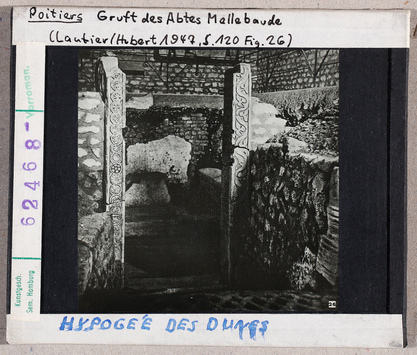 Poitiers Gruft des Abtes Mellebaude
(Laubier/Hubert 1947, S. 120 Fig. 26)
62468-
Vorroman.
Kunstgesch.
Sem. Hamburg
HYPOGEÉ DES DUNES